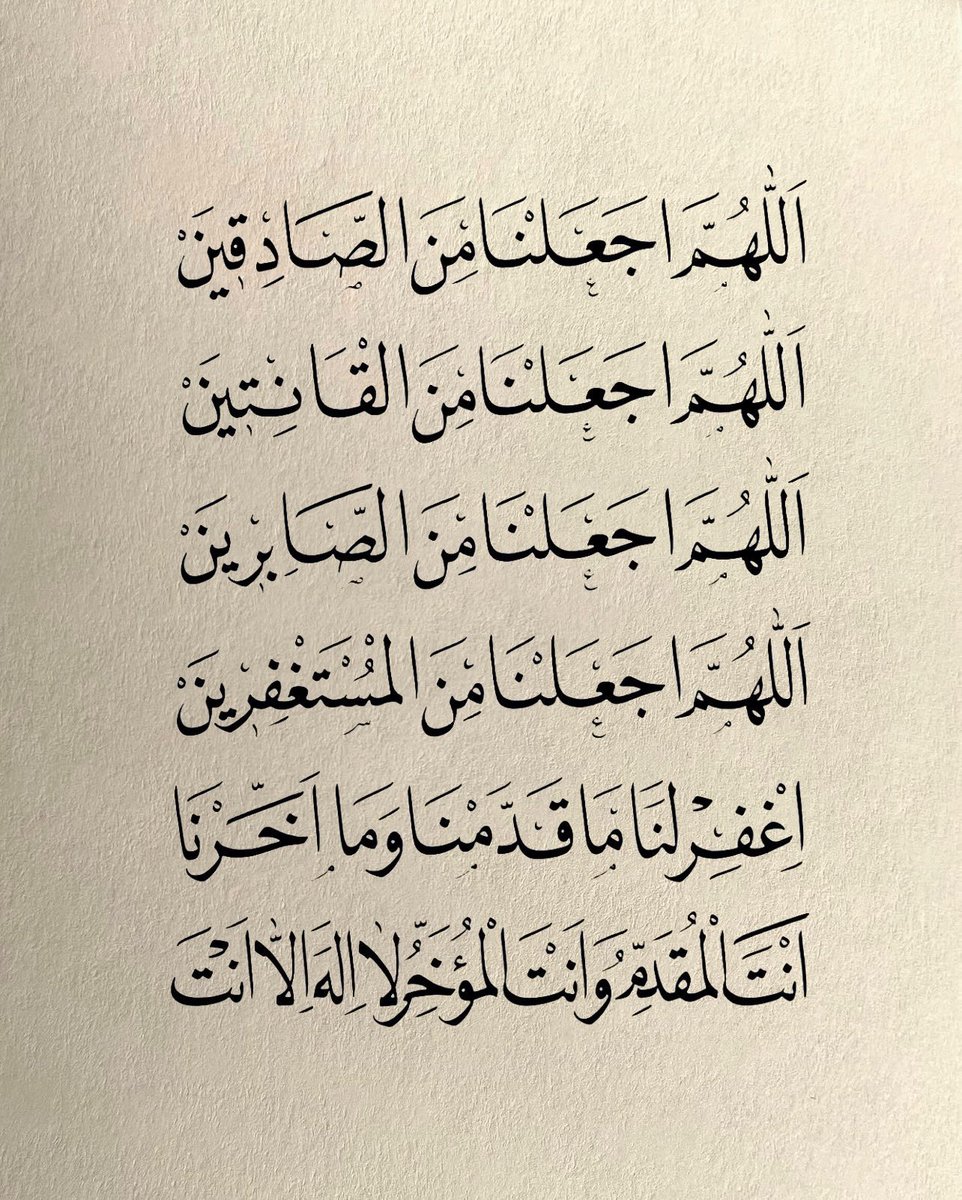 اَللّٰهُمَّ اجَعَلْنَا مِنَ الصَّادِقِينَ
اَللّٰهُمَّ اجَعَلْنَا مِنَ القَانِتِينَ
اَللّٰهُمَّ اجَعَلْنَا مِنَ الصَّابِرِينَ
اَللّٰهُمَّ اجَعَلْنَا مِنَ المُسْتَغْفِرِينَ
اِغْفِرْ لَنَا مَا قَدَّمْنَا وَمَا اَخَّرْنَا
اَنْتَ الْمُقَدِّمُ وَاَنْتَ الْمُؤَخِّرُ لَا اِلٰهَ اِلَّا اَنْتَ